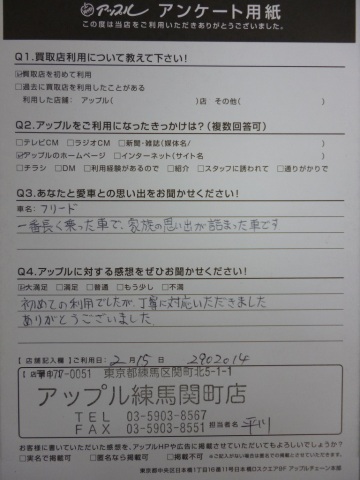 アップル アンケート用紙
この度は当店をご利用いただきありがとうございました。
Q1.買取店利用について教えて下さい!
☑買取店を初めて利用
□過去に買取店を利用したことがある
利用した店舗: アップル( )店 その他( )
Q2.アップルをご利用になったきっかけは?(複数回答可)
□テレビCM □ラジオCM □新聞・雑誌(媒体名/ )
☑アップルのホームページ □インターネット(サイト名 )
□チラシ □DM □利用経験があるので □紹介 □スタッフに誘われて □通りがかりで
Q3.あなたと愛車との思い出をお聞かせください!
車名: フリード
一番長く乗った車で、家族の思い出が詰まった車です
Q4.アップルに対する感想をぜひお聞かせください!
☑大満足 □満足 □普通 □もう少し □不満
初めての利用でしたが、丁寧に対応いただきました
ありがとうございました
【店舗記入欄】ご利用日: 2月15日 2902014
〒178-0051 東京都練馬区関町北5-1-1
アップル練馬関町店
TEL 03-5903-8567
FAX 03-5903-8551 担当者名 平川
お客様に書いていただいた感想を、アップルHPや広告に掲載させていただいてもよろしいでしょうか?
□実名で掲載可 □匿名なら掲載可 □掲載不可 ※ご記入がない場合は匿名での掲載とさせていただきます。
東京都中央区日本橋1丁目16番11号日本橋DスクエアSF アップルチェーン本部